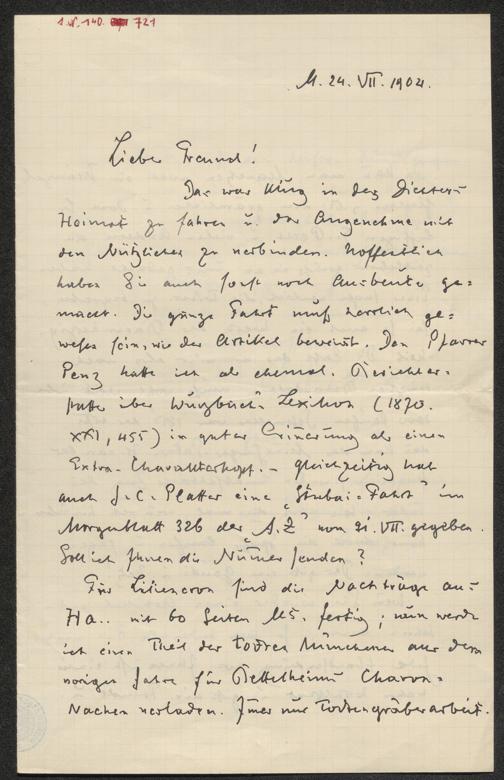 M. 24. VII. 1904.
Lieber Freund!
Das war klug in des Dichters
Heimat zu fahren u. das Angenehme mit
dem Nützlichen zu verbinden. Hoffentlich
haben Sie auch sonst noch Ausbeute ge=
macht. Die ganze Fahrt muß herrlich ge=
wesen sein, wie der Artikel beweist. Den Pfarrer
Penz hatte ich als ehemal. Berichter=
statter über Wurzbach's Lexikon (1870.
XXI, 455) in guter Erinnerung als einen
Extra-Charakterkopf. – Gleichzeitig hat
auch J. C. Platter eine „Stubai-Fahrt" im
Morgenblatt 326 der „A.Z" vom 21. VII. gegeben.
Soll ich Ihnen die Numer senden?
Für Liliencron sind die Nachträge aus
Ha.. mit 60 Seiten MS. fertig; nun werde
ich einen Theil der todten Münchener aus dem
vorigen Jahre für Bettelheims Charon=
Nachen verladen. Imer nur Todtengräberarbeit.